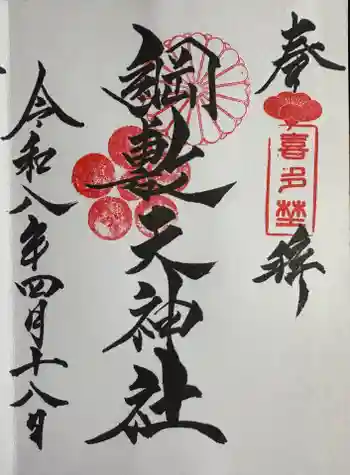 奉拝
喜多埜
綱敷天神社
令和八年四月十八日